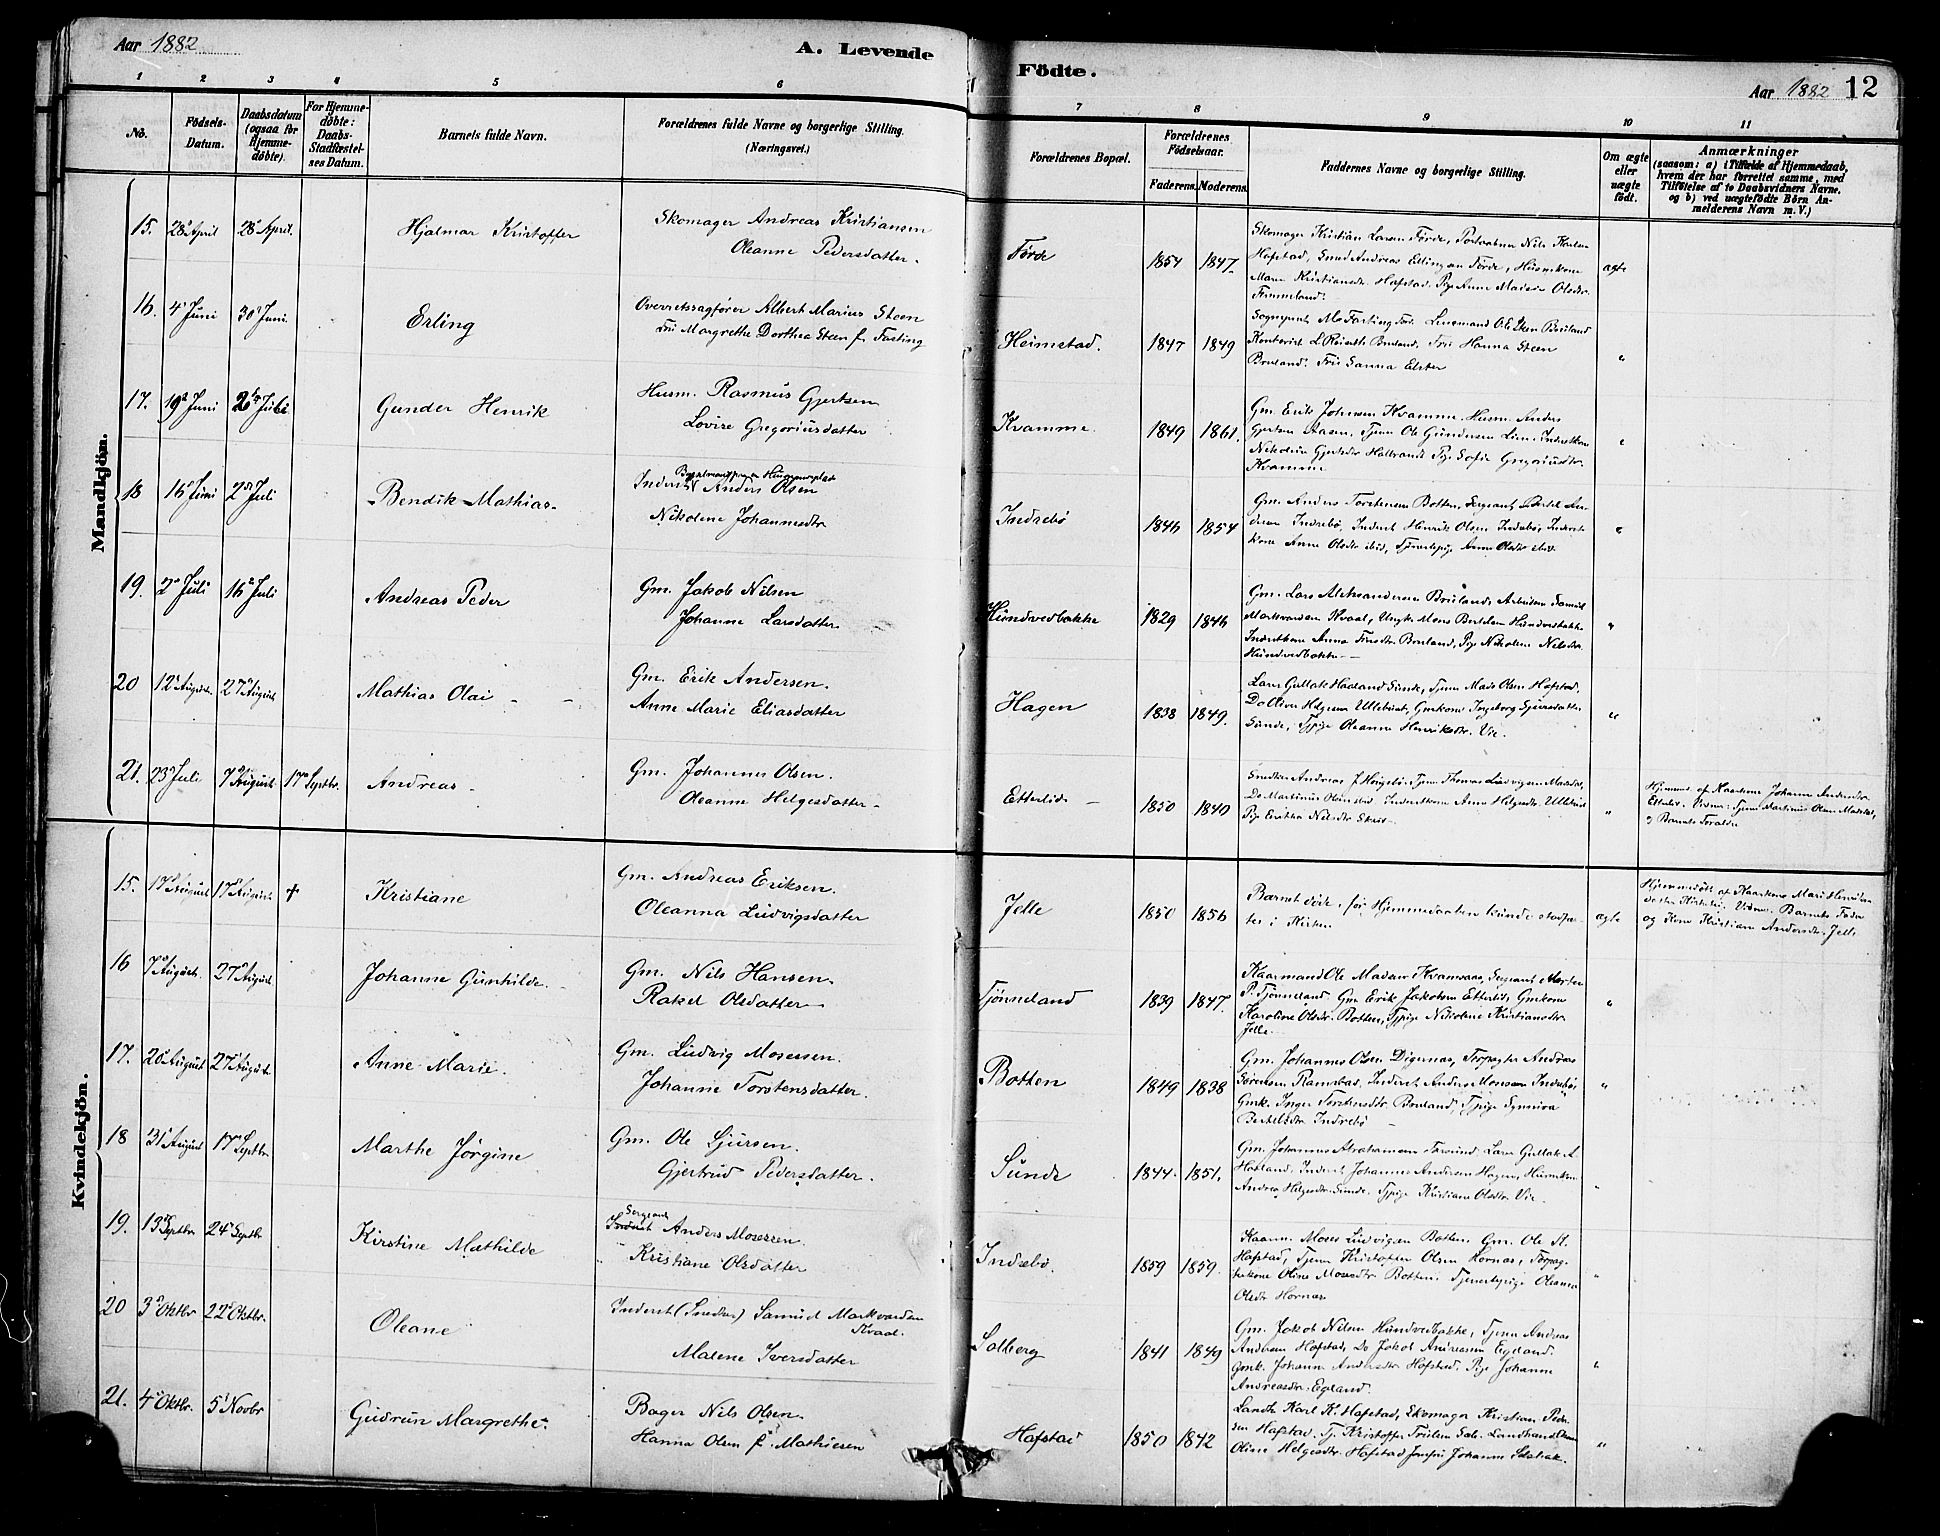 Aar 1882
A. Levende
Födte.
Aar 1882 12
1 2 3 4 5 6 7 8 9 10 11
No.
Födsels-Datum.
Daabsdatum (ogsaa for Hjemmedöbte).
For Hjemmedöbte: Daabs-Stadfæstelses Datum.
Barnets fulde Navn.
Forældrenes fulde Navne og borgerlige Stilling. (Næringsvei.)
Forældrenes Bopæl.
Forældrenes Födselsaar.
Faderens. Moderens.
Faddernes Navne og borgerlige Stilling.
Om ægte eller uægte födt.
Anmærkninger
(saasom: a) i Tilfælde af Hjemmedaab, hvem der har forrettet samme, med Tilföielse af to Daabsvidners Navne, og b) ved uægtefödte Börn Anmelderens Navn m. V.)
Mandkjön.
15. 28 April 28 April. Hjalmar Kristoffer
Skomager Andreas Kristiansen
Oleanne Pedersdatter.
Förde 1854 1847
Skomager Kristian Larsen Förde, Nils Karlsen
Hafstad, Smed Andreas Ellingsen Förde, Huusmkone
Hafstad. Pige Anne Madsine Olsdtr.
ægte
16. 4 Juni 30 Juni. Erling
Overretssagförer Albert Marius Steen
Margrethe Dorthea Steen f. Fasting
Heimstad. 1847 1849
Fasting Förde. Lensmand Ole Steen Bruland
Kontorist Bruland, Hanna Steen
Bruland. Elster
17. 19 Juni 2 Juli Gunder Henrik
Husm. Rasmus Gjertsen
Lovise Gregoriusdatter
Kvamme. 1849 1861.
Gm. Erik Johnsen Kvamme. Husm. Anders
Gjertsen Aasen, Tjen Ole Gundersen Lien, Inderstkone
Nikoline Gjertsdtr Pige Sofie Gregoriusdtr.
Kvamme
18 16 Juni 2 Juli Bendik Mathias
Inderst Anders Olsen
Nikolene Johannesdtr
Indrebö 1846 1854
Gm. Anders Torstensen Botten, Sergeant Bertel
Indrebö, Inderst Henrik Olsen Indrebö, Inderst
kone Anne Olsdtr ibid, Tjenestepige Anne Olsdtr ibid.
19. 2 Juli 16 Juli Andreas Peder
Gm. Jakob Nilsen
Johanne Larsdatter
Hundvedbakke 1829 1846
Gm. Lars Aleksandersen Bruland, Arbeidsm Samuel
Markvardsen Kvaal, Ungk. Mons Bertelsen Hundvedbakke
Inderstkone Anna Bruland, Pige Nikoline Nilsdtr.
Hundvedbakke
20 12 August 27 August Mathias Olai
Gm. Erik Andersen.
Anne Marie Eliasdatter
Hagen 1838 1849.
Lars Gullak Haaland Sunde, Tjen Mads Olsen Hafstad.
Do Oliver Helgesen Ullebust, Gmkone Ingeborg Sjursdatter
Sunde, Tjpige Oleanne Henriksdtr. Vie.
21. 23 Juli 7 August 17 Septbr. Andreas
Gm. Johannes Olsen.
Oleanne Helgesdatter
Etterlid 1850 1840
Andreas Tjen Thomas Ludvigsen
Do Martinus Olsen ibid Inderstkone Anne Helgesdtr. Ullebust
Pige Nilsdtr
Hjemmed. af Kaarkone Johanne Andersdtr
Etterlid. Vidner: Tjen Martinus Olsen
og Barnets Forældre
Kvindekjön.
15. 17 August 17 August + Kristiane
Gm. Andreas Eriksen.
Oleanna Ludvigsdatter
Jelle 1850 1856
Barnet döde, för Hjemmedaaben kunde stadfæstes i Kirken
ægte
Hjemmedöbt af Kaarkone Mari
Vidner: Barnets Fader
og Kone Kristiane Andersdtr. Jelle
16 7 August. 27 August Johanne Gunhilde.
Gm. Nils Hansen.
Rakel Olsdatter
Tjönneland 1839 1847.
Kaarmand Ole Madsen Kvamsaas, Sergeant Morten
P. Tjönneland. Gm Erik Jakobsen Etterlid, Gmkone
Karoline Olsdtr. Botten, Tjpige Nikolene Kristiansdtr
Jelle
17. 20 August 27 August Anne Marie.
Gm. Ludvig Mosessen.
Johanne Torstensdatter.
Botten 1849 1838
Gm. Johannes Olsen Digernæs, Forpagter Andreas
Sörensen, Inderst Anders Monsen Indrebö
Gmk. Inger Torstensdtr. Bruland, Tjpige Synneva
Bertelsdtr Indrebö
18 31 August 17 Septbr Marthe Jörgine
Gm. Ole Sjursen.
Gjertrud Pedersdatter.
Sunde 1844. 1851.
Gm. Johannes Abrahamsen Farsund. Lars Gullak A
Haaland. Inderst Johannes Andersen Hagen, Husmkone
Andrea Helgesdtr. Sunde. Tjpige Kristiane Olsdtr. Vie.
19. 13 Septbr 24 Septbr Kirstine Mathilde
Sergeant
Inderst Anders Mosessen.
Kristiane Olsdatter
Indrebö. 1859 1859.
Kaarm. Moses Ludvigsen Botten. Gm. Ole A.
Hafstad, Tjen Kristoffer Olsen Hornæs, Forpagterkone Oline Mosesdtr Botten. Tjenestepige Oleanna
Olsdtr Hornæs
20 3 Oktbr 22 Oktbr. Oleane
Inderst (Snedker) Samuel Markvardsen
Kvaal.
Malene Iversdatter
Solberg 1841 1849
Gm. Jakob Nilsen Hundvedbakke, Tjen Andreas
Andersen Hafstad, Do Jakob Andreassen Egeland.
Gmk. Johanne Andersdtr Hafstad. Pige Johanne
Andreasdtr. Egeland.
21. 4 Oktbr. 5 Novbr Gudrun Margrethe
Bager Nils Olsen.
Hanna Olsen f. Mathiesen
Hafstad 1850 1842
Karl K. Hafstad, Skomager Kristian Pedersen Hafstad. Tj. Kristoffer
Oline Helgesdtr. Hafstad Johanne